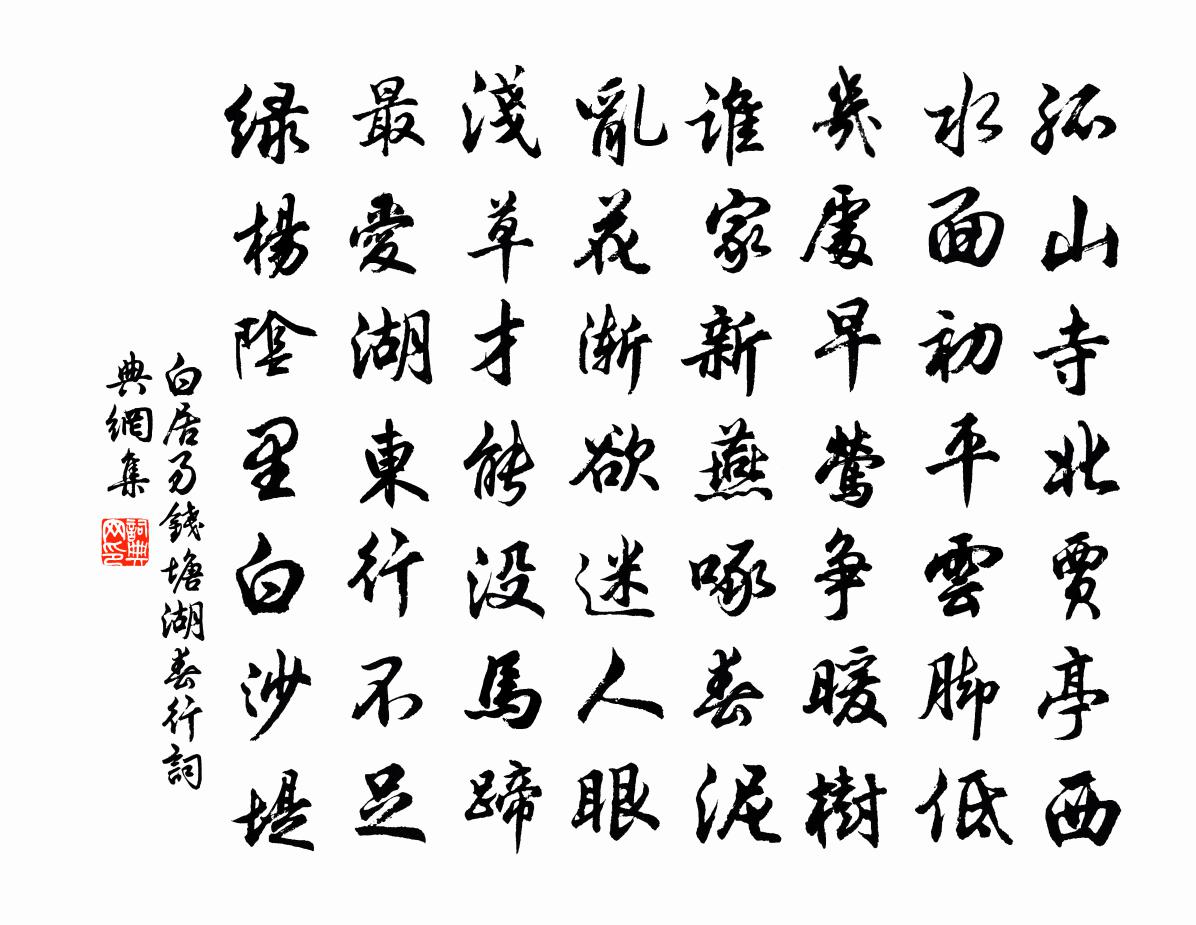 孤山寺北賈亭西
水面初平雲脚低
幾處早鶯争暖樹
誰家新燕啄春泥
亂花漸欲迷人眼
淺草才能没馬蹄
最愛湖東行不足
緑楊陰里白沙堤
白居易錢塘湖春行詞
典網集
詞典
网印